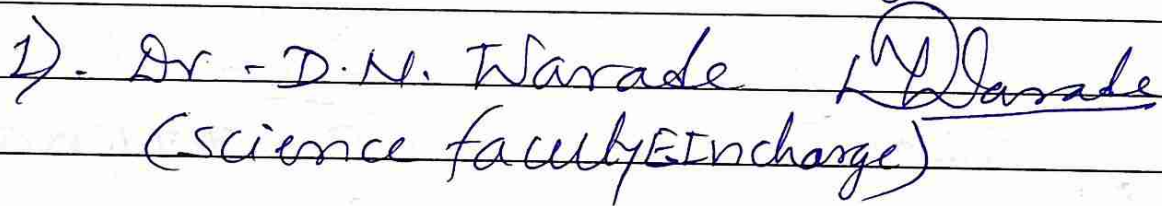 1). Dr - D. N. Warade Warade
(Science facultyEIncharge)